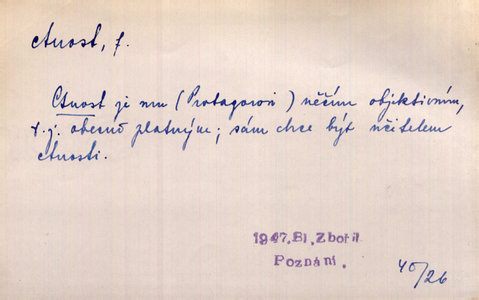 ctnost, f.
Ctnost je mu (Protagorovi) něčím objektivním,
t.j. obecně platným; sám chce být učitelem
ctnosti.
1947.Bl.Zbořil
Poznání.
40/26